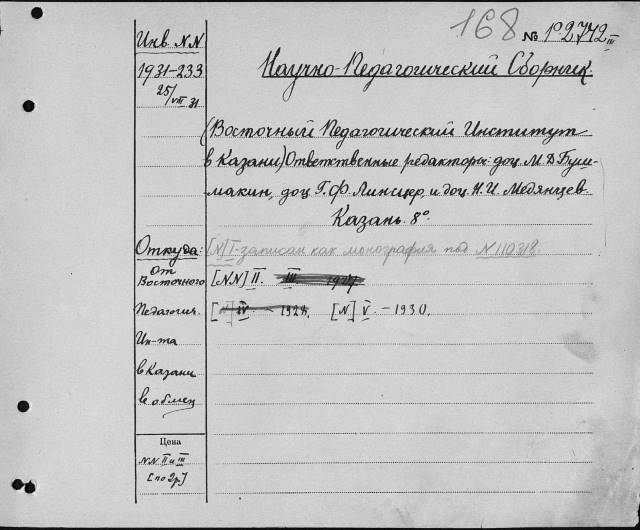 168 № 1º2742 III
Инв. NN
1931-233
25/VIII 31
Научно-Педагогический Сборник.
(Восточный Педагогический Институт
в Казани) Ответственные редакторы: доц. М. Д. Буш-
макин, доц. Г. Ф. Линсцер, и доц. Н. И. Медянцев.
Казань 8º.
Откуда: [N] I-записан как монография под N 110318.
От
Восточного [NN] II. III 1927.
Педагогич. [N] IV - 1928. [N] V. - 1930.
Ин-та
в Казани
в обмен
Цена
NN II и III
[по 2р]